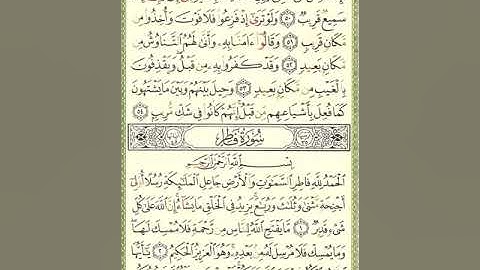 سَمِيعٌ قَرِيبٌ ٥٠ وَلَوْ تَرَىٰٓ إِذْ فَزِعُوا۟ فَلَا فَوْتَ وَأُخِذُوا۟ مِن
مَّكَانٍ قَرِيبٍ ٥١ وَقَالُوٓا۟ ءَامَنَّا بِهِۦ وَأَنَّىٰ لَهُمُ ٱلتَّنَاوُشُ مِن
مَّكَانٍۭ بَعِيدٍ ٥٢ وَقَدْ كَفَرُوا۟ بِهِۦ مِن قَبْلُ وَيَقْذِفُونَ
بِٱلْغَيْبِ مِن مَّكَانٍۭ بَعِيدٍ ٥٣ وَحِيلَ بَيْنَهُمْ وَبَيْنَ مَا يَشْتَهُونَ
كَمَا فُعِلَ بِأَشْيَاعِهِم مِّن قَبْلُ إِنَّهُمْ كَانُوا۟ فِى شَكٍّ مُّرِيبٍۭ ٥٤
سُورَةُ فَاطِرٍ
بِسْمِ ٱللَّهِ ٱلرَّحْمَٰنِ ٱلرَّحِيمِ
ٱلْحَمْدُ لِلَّهِ فَاطِرِ ٱلسَّمَٰوَٰتِ وَٱلْأَرْضِ جَاعِلِ ٱلْمَلَٰٓئِكَةِ رُسُلًا أُو۟لِىٓ
أَجْنِحَةٍ مَّثْنَىٰ وَثُلَٰثَ وَرُبَٰعَ يَزِيدُ فِى ٱلْخَلْقِ مَا يَشَآءُ إِنَّ ٱللَّهَ عَلَىٰ كُلِّ
شَىْءٍ قَدِيرٌ ١ مَّا يَفْتَحِ ٱللَّهُ لِلنَّاسِ مِن رَّحْمَةٍ فَلَا مُمْسِكَ لَهَا
وَمَا يُمْسِكْ فَلَا مُرْسِلَ لَهُۥ مِنۢ بَعْدِهِۦ وَهُوَ ٱلْعَزِيزُ ٱلْحَكِيمُ ٢ يَٰٓأَيُّهَا